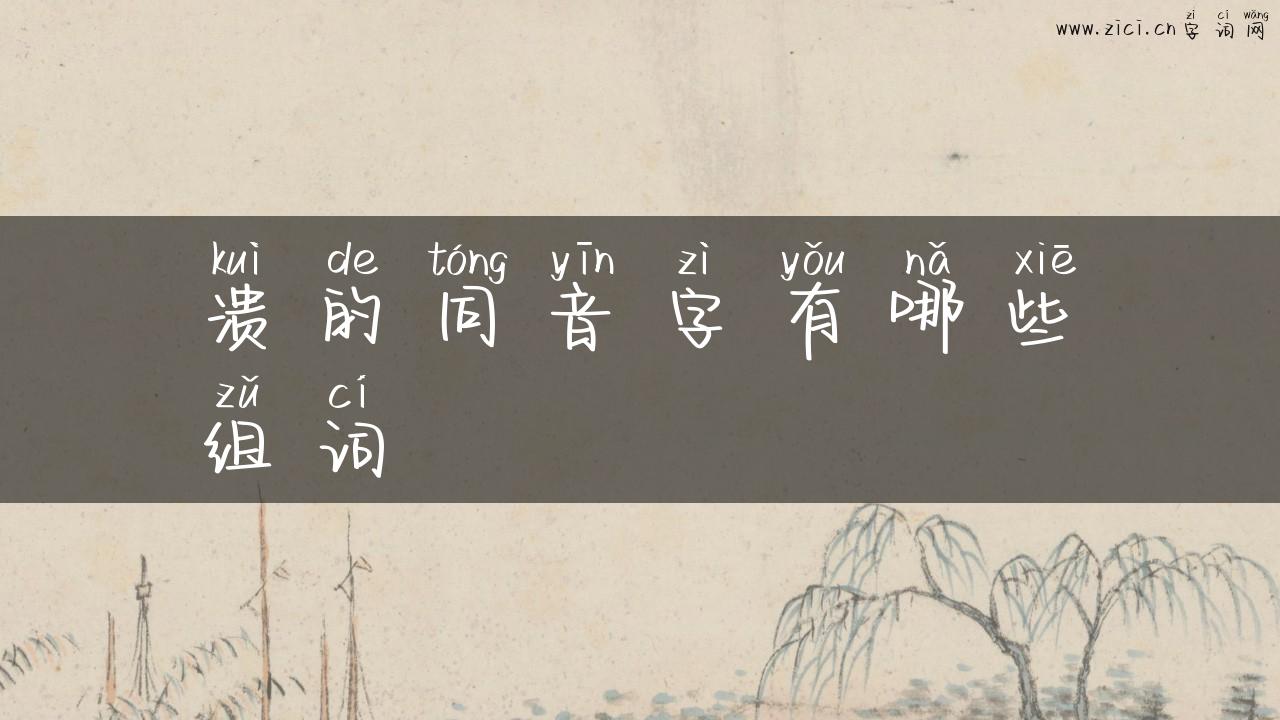 zì cí wǎng
www.zici.cn 字词网
kuì de tóng yīn zì yǒu nǎ xiē
溃的同音字有哪些
zǔ cí
组词